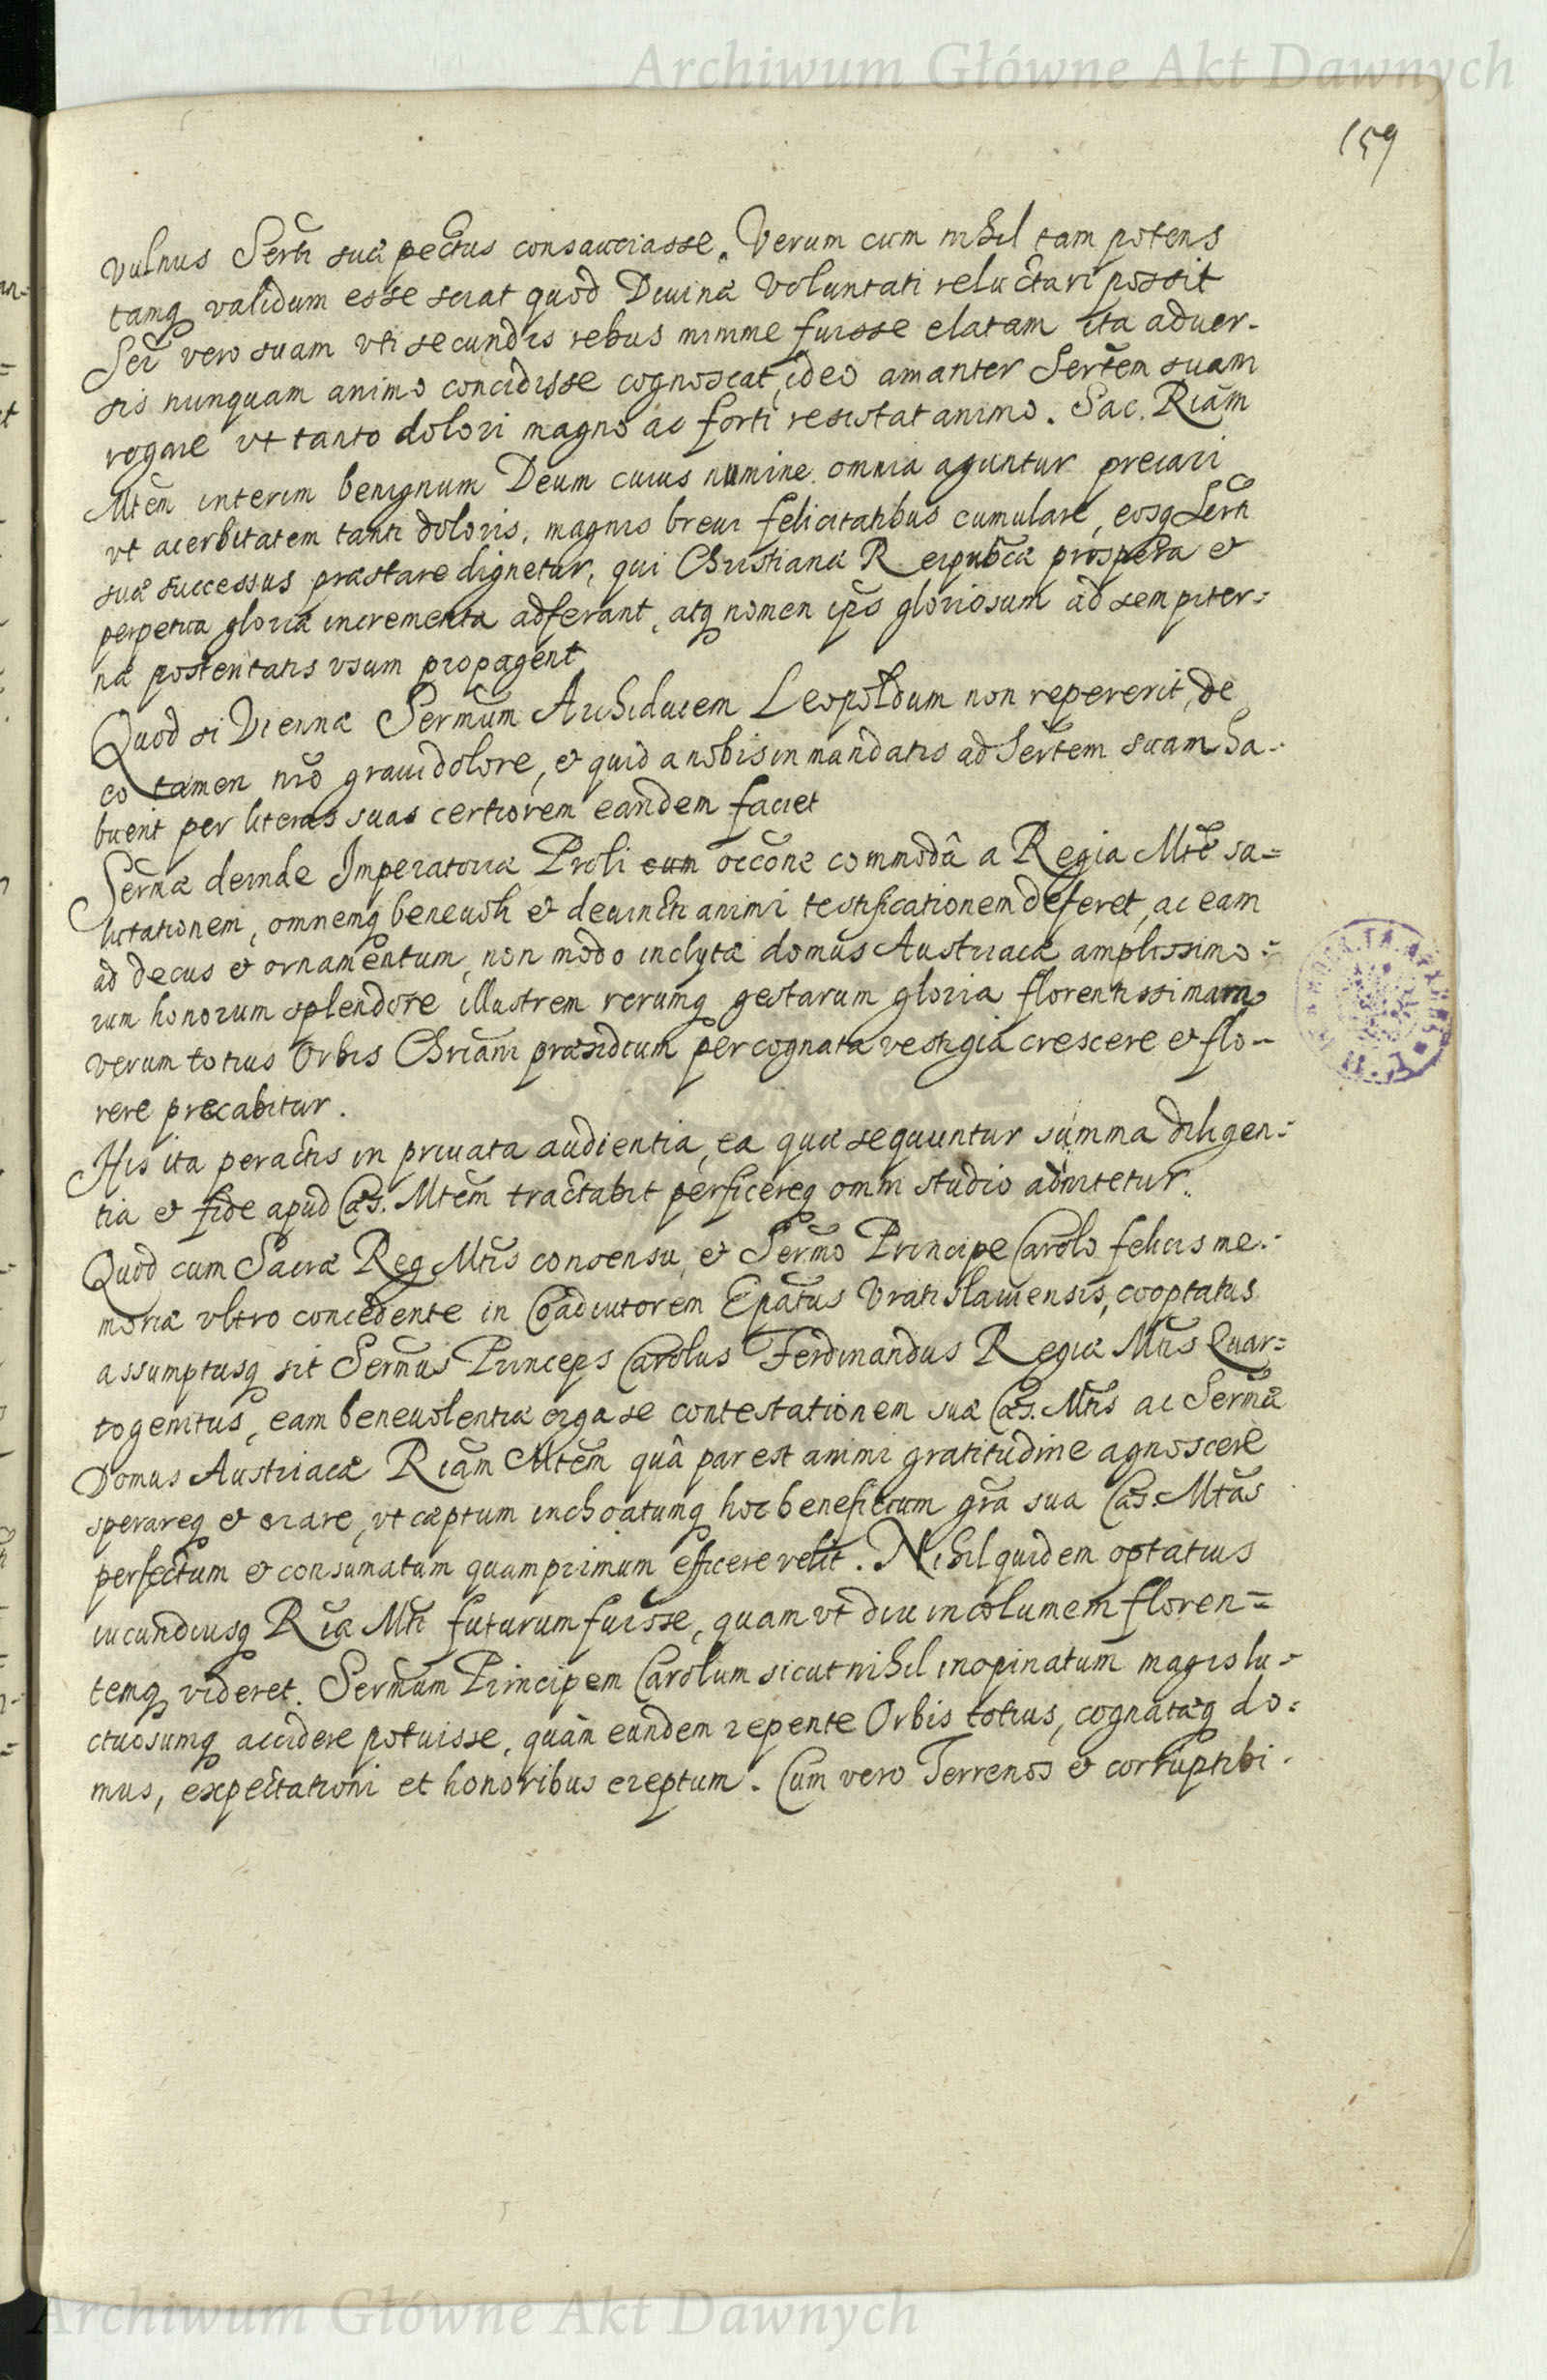 Archiwum Główne Akt Dawnych
159
Vulnus Serti suæ pectus consauciasse. Verum cum nihil tam potens
tamq validum esse sciat quod Diuinæ Voluntati reluctari possit
vero suam vti secundis rebus minime fuisse elatam ita aduer-
sis nunquam animo concidisse cognoscat, ideo amanter Sertem suam
rogare vt tanto dolori magno ac forti resistat animo. Sac. Riam
Mtem interim benignum Deum cuius numine omnia aguntur precari
vt acerbitatem tanti doloris, magnis breui felicitatibus cumulare, eosq Serti
suæ successus præstare dignetur, qui Christianæ Reipubcæ prospera et
perpetua gloriæ incrementa adferant, atq nomen ips gloriosum ad sempiter=
næ posteritatis vsum propagent
Quod si Viennæ Sermum Archiducem Leopoldum non repererit, de
eo tamen nro graui dolore, et quid a nobis in mandatis ad Sertem suam ha-
buerit per literas suas certiorem eandem faciet
Sermæ deinde Imperatoriæ Proli eum occone commodâ a Regia Mte sa=
lutationem, omnemq beneuoli et deuincti animi testificationem deferet, ac eam
ad decus et ornamentum, non modo inclytæ domus Austriacæ amplissimo=
rum honorum splendore illustrem rerumq gestarum gloria florentissimam
verum totius Orbis Chriani præsidium per cognata vestigia crescere et flo-
rere precabitur.
His ita peractis in priuata audientia, ea quæ sequuntur summa diligen=
tia et fide apud Cæs. Mtem tractabit perficereq omni studio adnitetur.
Quod cum Sacræ Reg Mtis consensu, et Sermo Principe Carolo felicis me-
moriæ vltro concedente in Coadiutorem Epatus Vratislauiensis, cooptatus
assumptusq sit Sermus Princeps Carolus Ferdinandus Regiæ Mtis Quar=
togenitus, eam beneuolentiæ erga se contestationem suæ Cæs. Mtis ac Sermæ
Domus Austriacæ Riam Mtem quâ par est animi gratitudine agnoscere
sperareq et orare, vt cæptum inchoatumq hoc beneficium gra sua Cæs. Mtas
perfectum et consumatum quamprimum efficere velit. Nihil quidem optatius
iucundiusq Riæ Mti futurum fuisse, quam vt diu incolumem floren=
temq videret Sermum Principem Carolum sicut nihil inopinatum magis lu-
ctuosumq accidere potuisse, quàm eundem repente Orbis totius, cognatæq do=
mus, expectationi et honoribus ereptum. Cum vero Terrenos et corruptibi-
Archiwum Główne Akt Dawnych